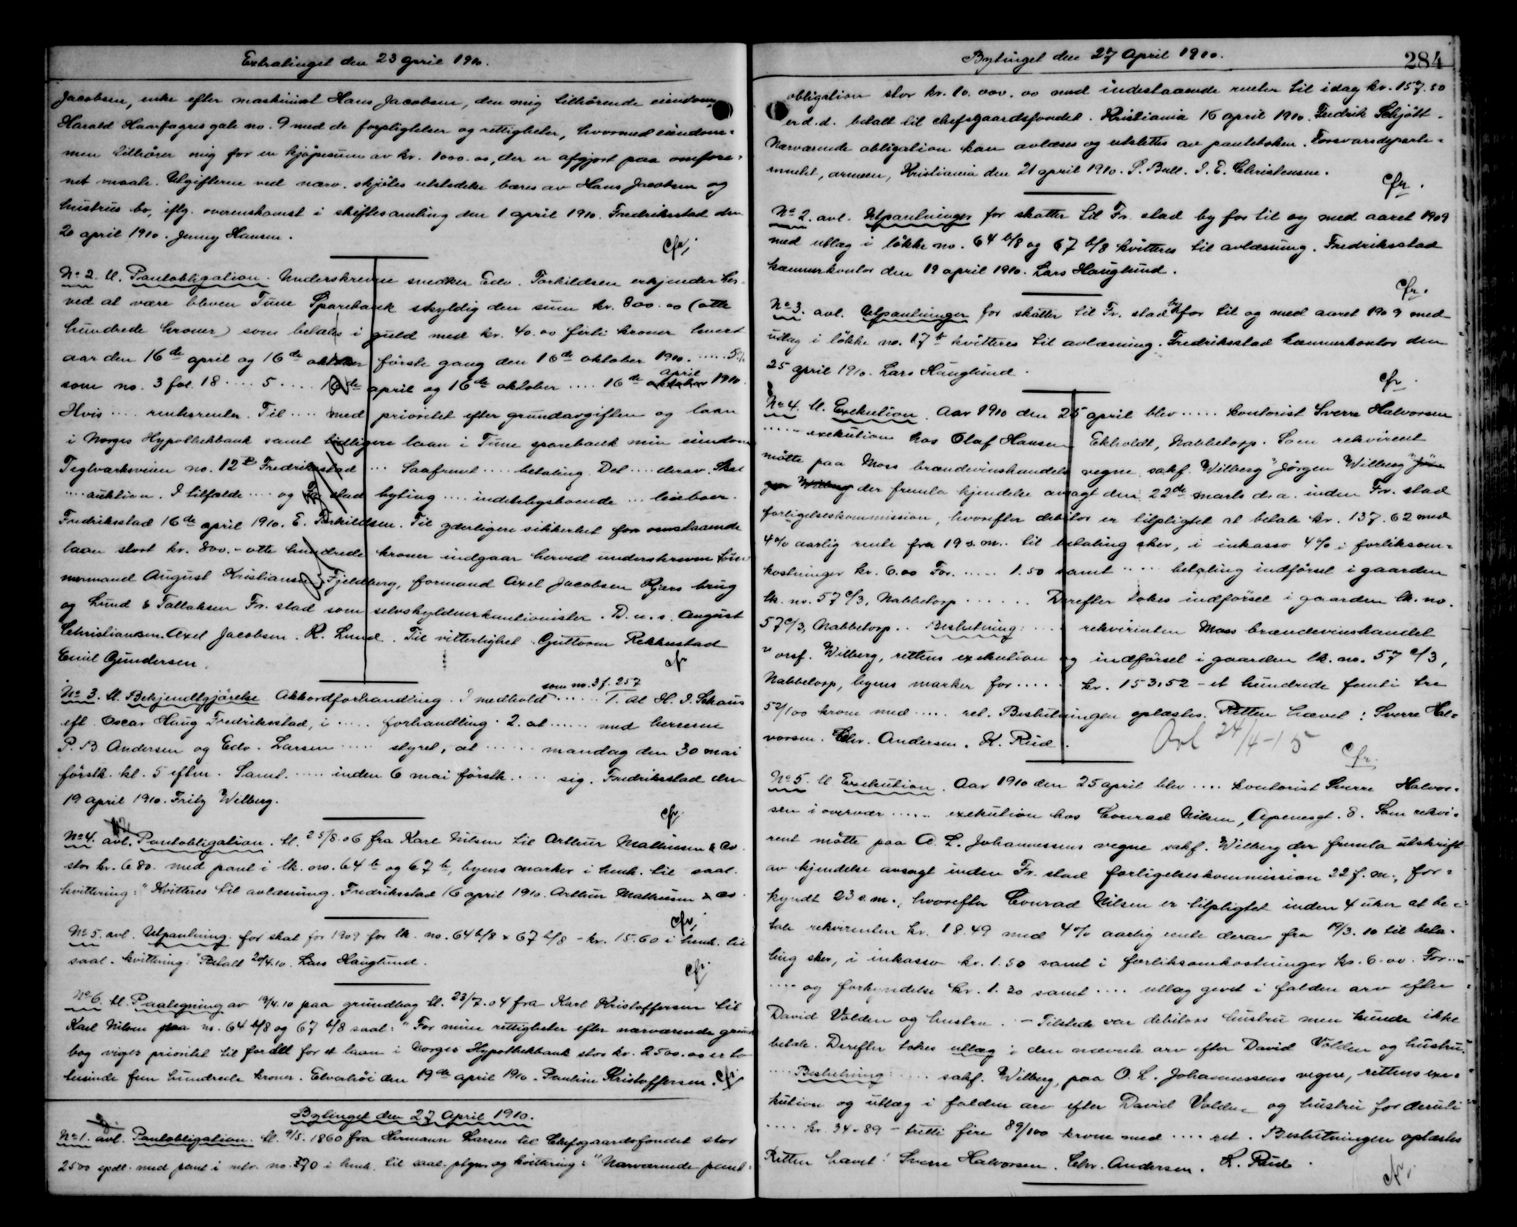 Extratinget den 23 april 1910.
Jacobsen, enke efter maskinist Hans Jacobsen, den mig tilhörende eiendom
Harald Haarfagresgate no. 9 med de forpligtelser og rettigheter, hvormed eiendom-
men tilhörer mig for en kjöpesum av kr. 1000.00, der er afgjort paa omfore-
net maate. Utgifterne ved nærv. skjötes utstedelse bæres av Hans Jacobsen og
hustrus bo, iflg. overenskomst i skiftesamling den 1 april 1910. Fredriksstad den
20 april 1910. Jenny Hansen.
cfr.
No 2. U. Pantobligation. Underskrevne snedker Edv. Torkildsen erkjender her-
ved at være bleven Tune Sparebank skyldig den sum kr. 800.00 (otte
hundrede kroner) som betales i guld med kr. 40.00 förti kroner hvert
aar den 16de april og 16de oktober förste gang den 16de oktober 1910. ..... 5%
som no. 3 fol. 18 .... 5 .... 16de april og 16de oktober .... 16de oktober april 1910.
Hvis .... rentesrenter. Til .... med prioritet efter grundavgiften og laan
i Norges Hypothekbank samt tidligere laan i Tune sparebank min eiendom
Teglverksveien no. 12 b Fredriksstad ... Saafremt .... betaling. Del .... derav. Skal
.... auktion. I tilfælde ... og Fr. stad byting .... indstelsstævnede .... leieboer.
Fredriksstad 16de april 1910. E. Torkildsen. Til yderligere sikkerhet for ovenstaaende
laan stort kr. 800.- otte hundrede kroner indgaar herved underskrevne töm-
mermand August Kristiansen Fjeldberg, formand Axel Jacobsen Kjærs brug
og Lund & Tallaksen Fr. stad som selvskyldnerkautionister. D.u.s. August
Christiansen. Axel Jacobsen. R. Lund. Til vitterlighet Guttorm Rekkestad
Emil Gundersen.
cfr
No 3. U. Bekjendtgjörelse Akkordforhandling. I medhold som no. 3 f. 257 .... 1. at H. J. Schaus
eft. Oscar Haug Fredriksstad, i ..... forhandling. 2. at ..... med herrerne
P. B. Andersen og Edv. Larsen ..... styret, at ..... mandag den 30 mai
förstk. kl. 5 eftm. Samt. ..... inden 6 mai förstk. .... sig. Fredriksstad den
19 april 1910. Fritz Wilberg.
cfr.
No 4. avl. Pantobligation. U. 25/8.06 fra Karl Nilsen til Arthur Mathiesen & Co
stor kr. 680. med pant i lk. no. 64 b og 67 b, byens marker i henh. til saal.
kvittering: "Kvitteres til avlæsning. Fredriksstad 16 april 1910. Arthur Mathiesen & Co.
cfr.
No 5. avl. Utpantning. for skat for 1909 for lk. no. 64 b/8 & 67 b/8 - kr. 15.60 i henh. til
saal. kvittering: "Betalt 20/4.10. Lars Hauglund.
cfr.
No 6. U. Paategning av 19/4.10 paa grundbog U. 23/7.04 fra Karl Kristoffersen til
Karl Nilsen paa no. 64 b/8 og 67 b/8 saal: "For mine rettigheter efter nærværende grund-
bog viges prioritet til fordel for et laan i Norges Hypothekbank stor kr. 2500.00 er to
tusinde fem hundrede kroner. Elvarhöi den 19de april 1910. Pauline Kristoffersen. cfr
Bytinget den 27 April 1910.
No 1. avl. Pantobligation. U. 9/5. 1860 fra Hermann Larsen til Chefsgaardsfondet stor
2500 spdl. med pant i mtr. no. 370 i henh. til saal. ptgn. og kvittering: "Nærværende pant-
Avl
Bytinget den 27 April 1910.
284
obligation stor kr. 10.000.00 med indestaaende renter til idag kr. 157.50
er d.d. betalt til chefsgaardsfondet. Kristiania 16 april 1910. Fredrik Schjött.
Nærværende obligation kan avlæses og utslettes av panteboken. Forsvarsdeparte-
mentet, armeen, Kristiania den 21 april 1910. P. Bull. S. E. Christensen.
cfr.
No 2. avl. Utpantninger for skatter til Fr. stad by for til og med aaret 1909
med utlæg i lökke no. 64 b/8 og 67 b/8 kvitteres til avlæsning. Fredriksstad
kæmnerkontor den 19 april 1910. Lars Hauglund.
cfr.
No 3. avl. Utpantninger for skatter til Fr. stad by for til og med aaret 1909 med
utlæg i lökke no. 17 b kvitteres til avlæsning. Fredriksstad kæmnerkontor den
25 april 1910. Lars Hauglund.
cfr.
No 4. U. Exekution. Aar 1910 den 25 april blev ..... kontorist Sverre Halvorsen
..... exekution hos Olaf Hansen Ekholdt, Nabbetorp. Som rekvirent
mötte paa Moss brændevinshandels vegne sakf. Wilberg "Jörgen Wilberg"
der fremla kjendelse avsagt den 22de marts d.a. inden Fr. stad
forligelseskommission, hvorefter debitor er tilpligtet at betale kr. 137.62 med
4% aarlig rente fra 19 s.m. til betaling sker, i inkasso 4% i forliksom-
kostninger kr. 6.00 For. ..... 1.50 samt .... betaling indförsel i gaarden
lk. no. 57 c/3, Nabbetorp ...... Derefter tokes indförsel i gaarden lk. no.
57 c/3, Nabbetorp.. Beslutning: .... rekvirenten Moss brændevinshandel
v/ orsf. Wilberg, rettens exekution og indförsel i gaarden lk. no. 57 c/3,
Nabbetorp, byens marker for .... kr. 153.52 - et hundrede femti tre
52/100 krone med .... ret. Beslutningen oplæstes. Retten hævet: Sverre Hal-
vorsen. Chr. Andersen. K. Rud.
Avl 24/4-15
cfr.
No 5. U Exekution. Aar 1910 den 25 april blev .... kontorist Sverre Halvor-
sen i overvær ..... exekution hos Conrad Nilsen, Apenesgt. 8. Som rekvi-
rent mötte paa O. L. Johannessens vegne sakf. Wilberg der fremla utskrift
av kjendelse avsagt inden Fr. stad forligelseskommission 22 f.m., for-
kyndt 23 s.m., hvorefter Conrad Nilsen er tilpligtet inden 4 uker at be-
tale rekvirenten kr. 18.49 med 4% aarlig rente derav fra 19/3.10 til beta-
ling sker, i inkasso kr. 1.50 samt i forliksomkostninger kr. 6.00. For....
.... og forkyndelse kr. 1.20 samt .... utlæg gevet i falden arv efter
David Volden og hustru. - Tilstede var debitors hustru men kunde ikke
betale. Derefter tokes utlæg i den nævnte arv efter David Volden og hustru.
.... Beslutning: .... sakf. Wilberg, paa O. L. Johannessens vegne, rettens exe-
kution og utlæg i falden arv efter David Volden og hustru for deruti
.... kr. 34.89 - tretti fire 89/100 krone med .... ret. Beslutningen oplæstes
Retten hævet: Sverre Halvorsen. Chr. Andersen. K. Rud.
cfr.